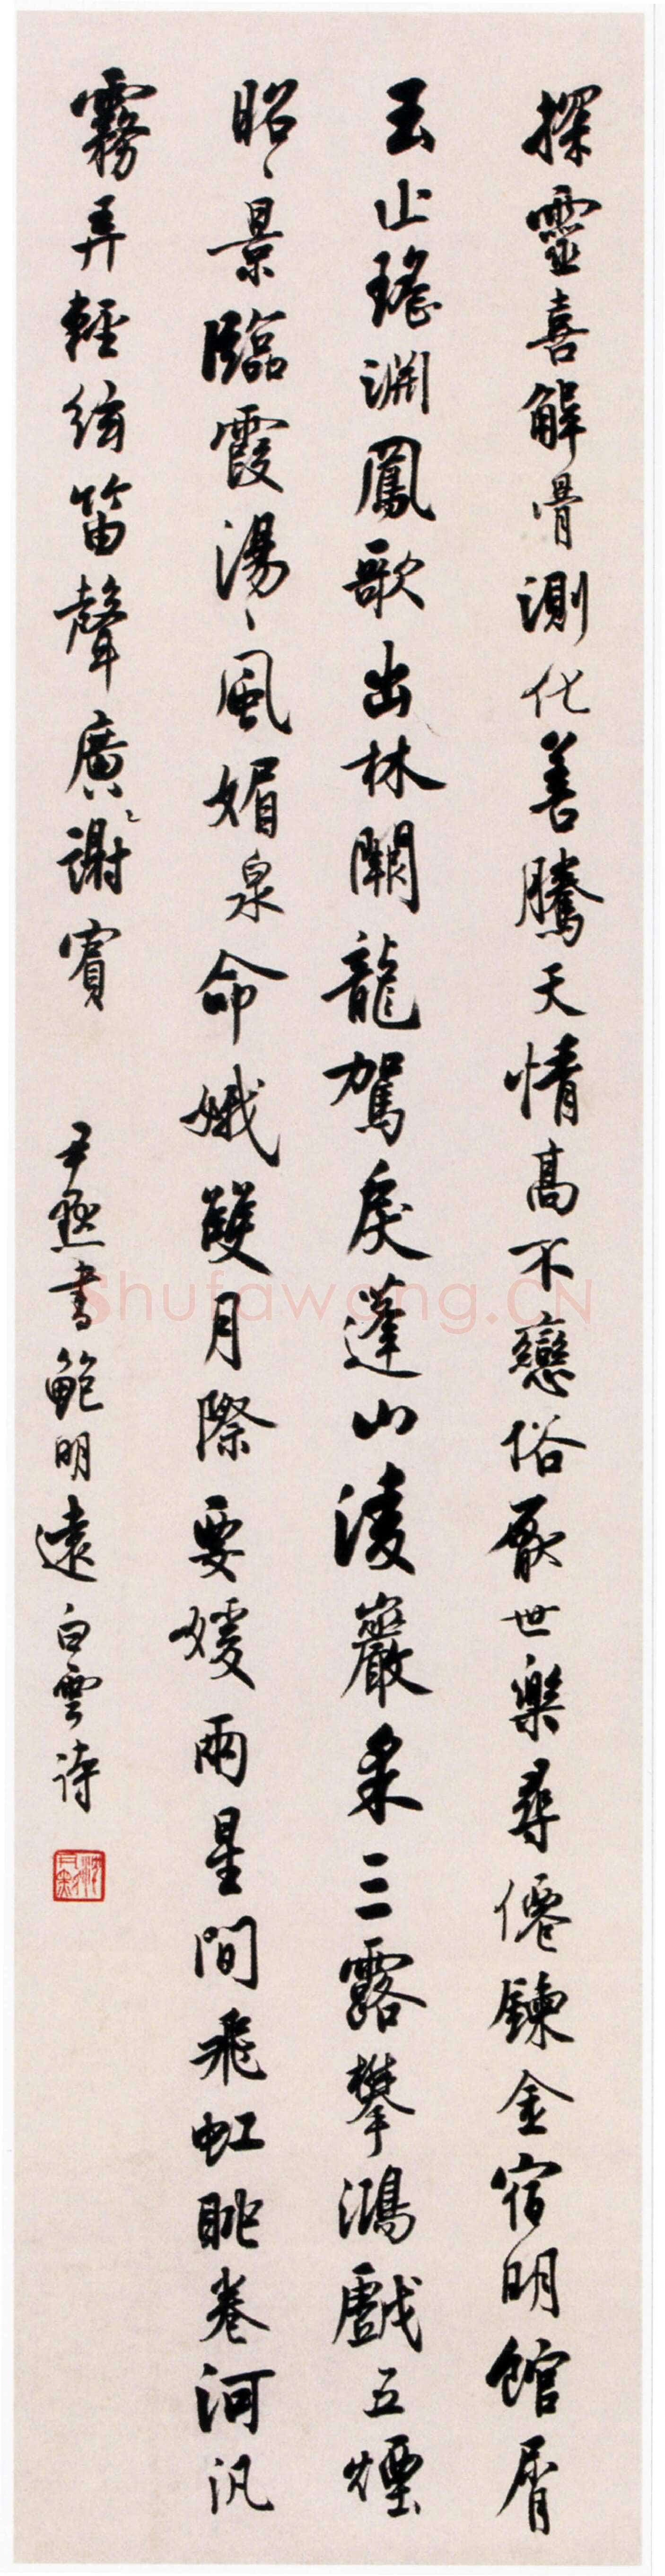 探靈喜解骨測化善騰天情高不戀俗厭世樂尋僊鍊金宿明館屑
玉止瑤淵鳳歌出林闕龍駕戾蓬山淩巖采三露攀鴻戲五煙
昭〻景臨霞湯〻風媚泉命娥雙月際要媛兩星間飛虹眺卷河汎
霧弄輕絃笛聲廣〻謝賓
尹默書鮑明遠白雲詩
Shufawang.CN